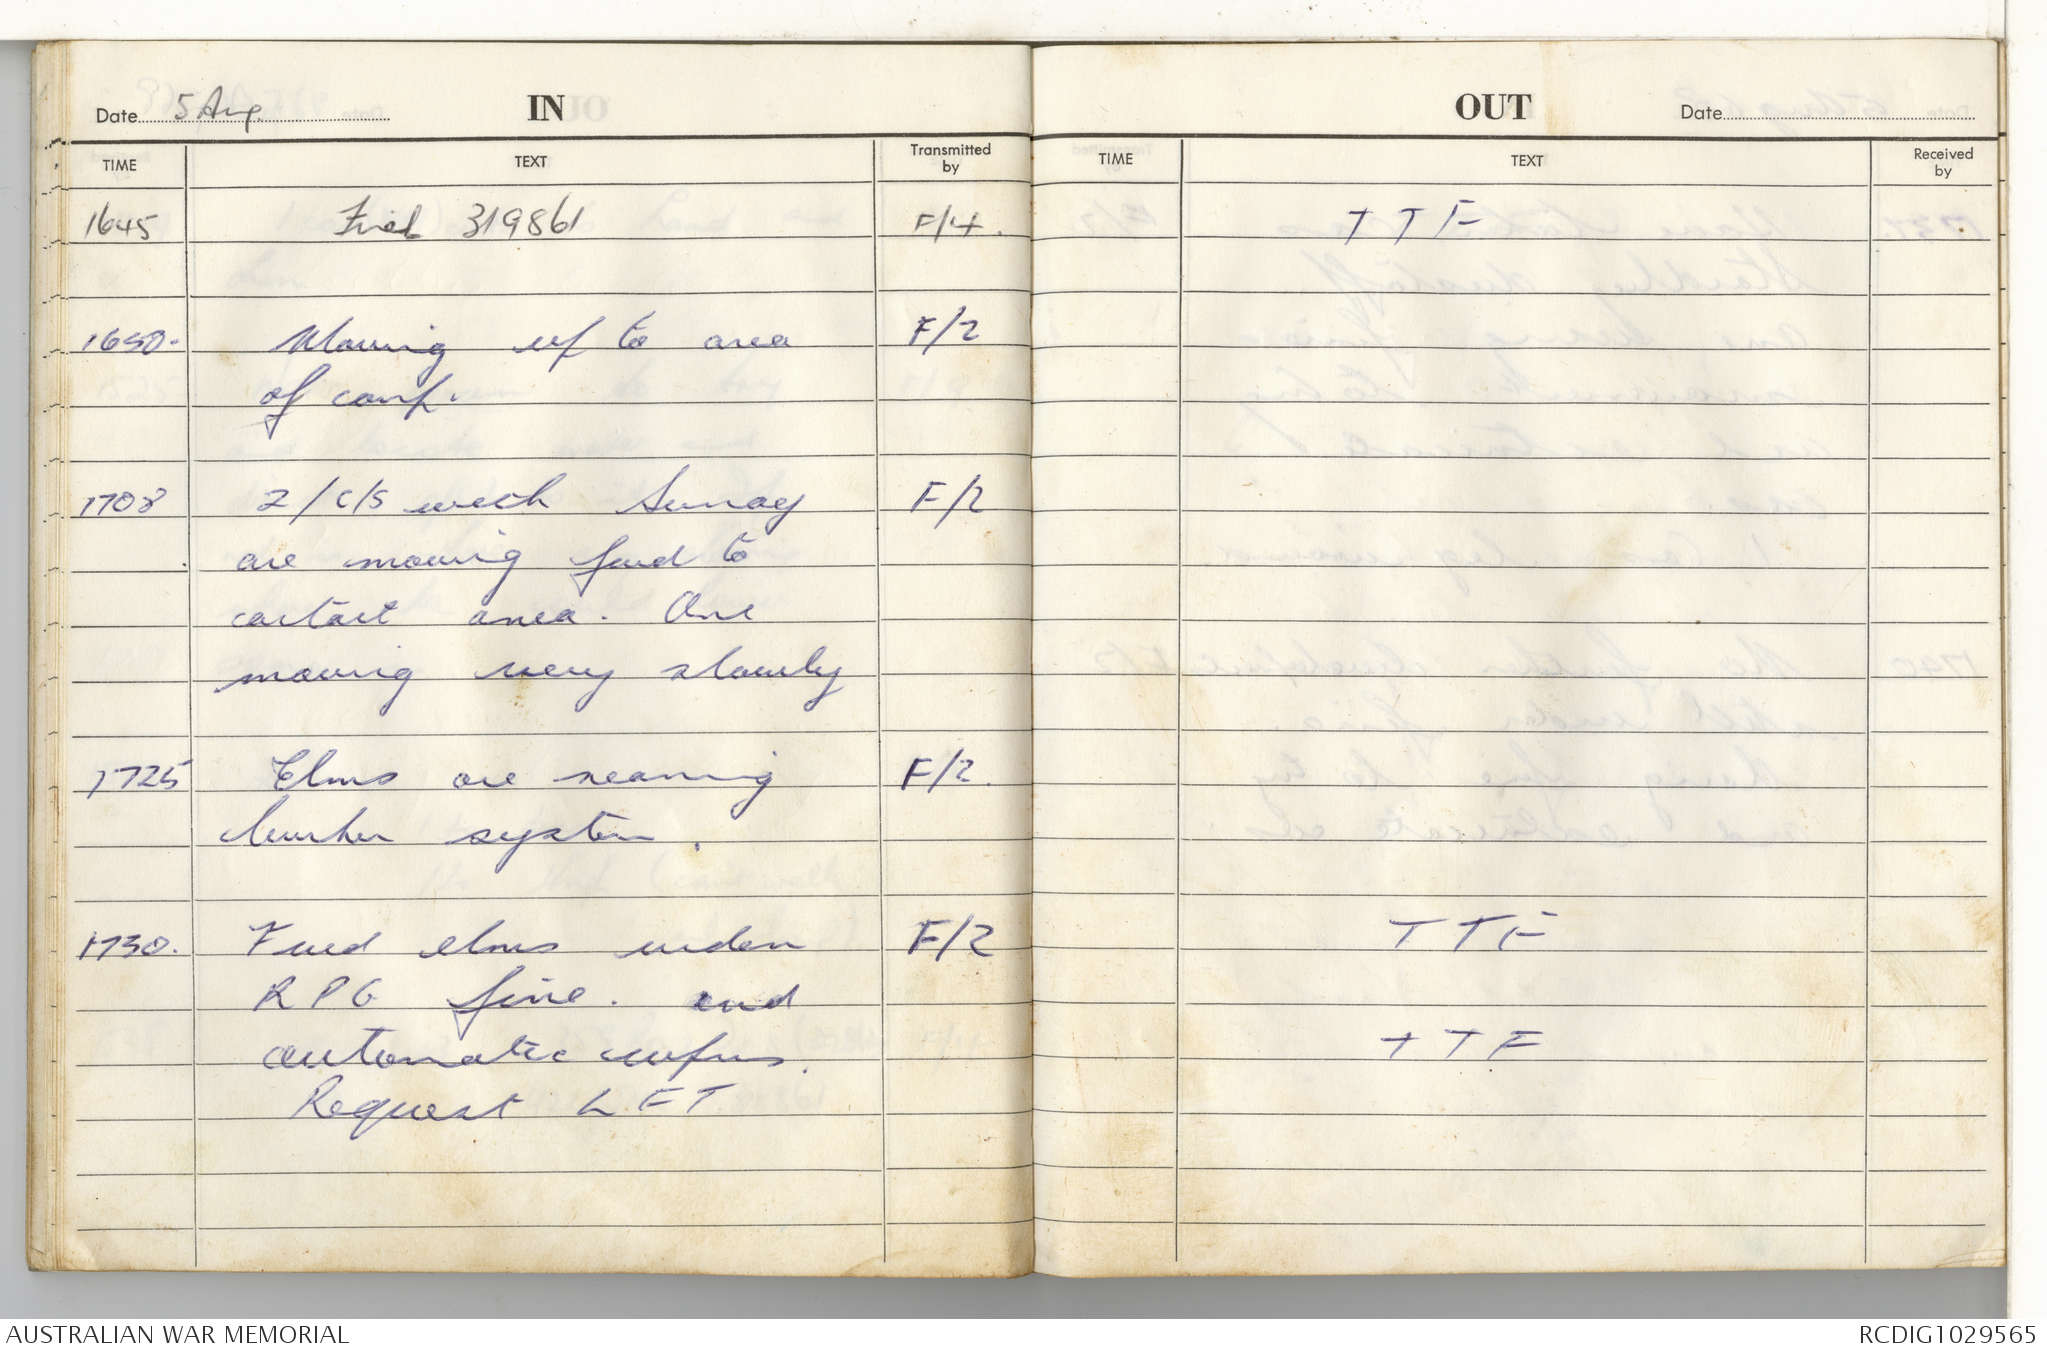 Date 5 Aug. IN
TIME TEXT Transmitted by
1645 Fired 319861 F/4.
1650. Moving up to area F/2
of camp.
1708 2/C/S with Sunray F/2
are moving fwd to
contact area. Are
moving very slowly
1725 Elms are nearing F/2.
bunker system.
1730. Fwd elms under F/2
RPG fire. and
automatic
Request LFT
OUT Date
TIME TEXT Received by
TTF
TTF
TTF
AUSTRALIAN WAR MEMORIAL RCDIG1029565